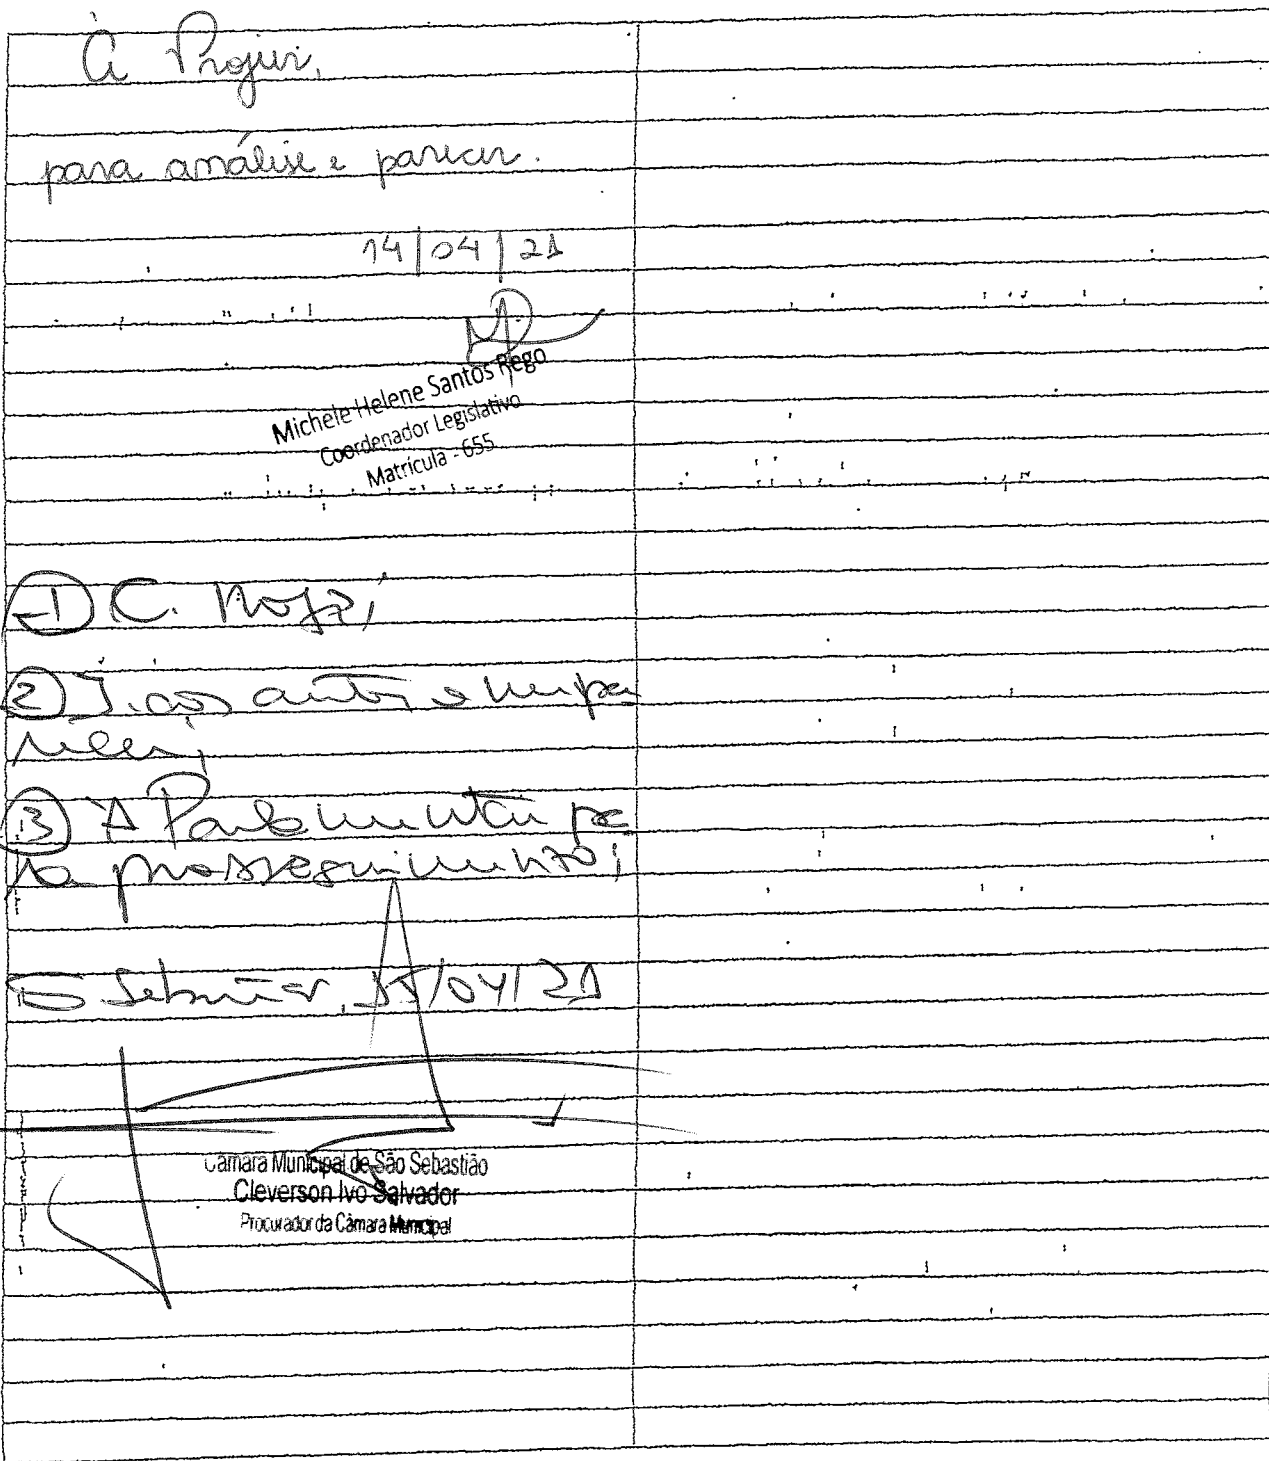 À Projur,
para análise e parecer.
14/04/21
Michele Helene Santos Rego
Coordenador Legislativo
Matrícula - 655
1 C. hoje,
2 J. aos autos o meu pa
recer;
3 A Parlamentar pa
ra prosseguimento;
S Sebastião, 15/04/21
Câmara Municipal de São Sebastião
Cleverson Ivo Salvador
Procurador da Câmara Municipal